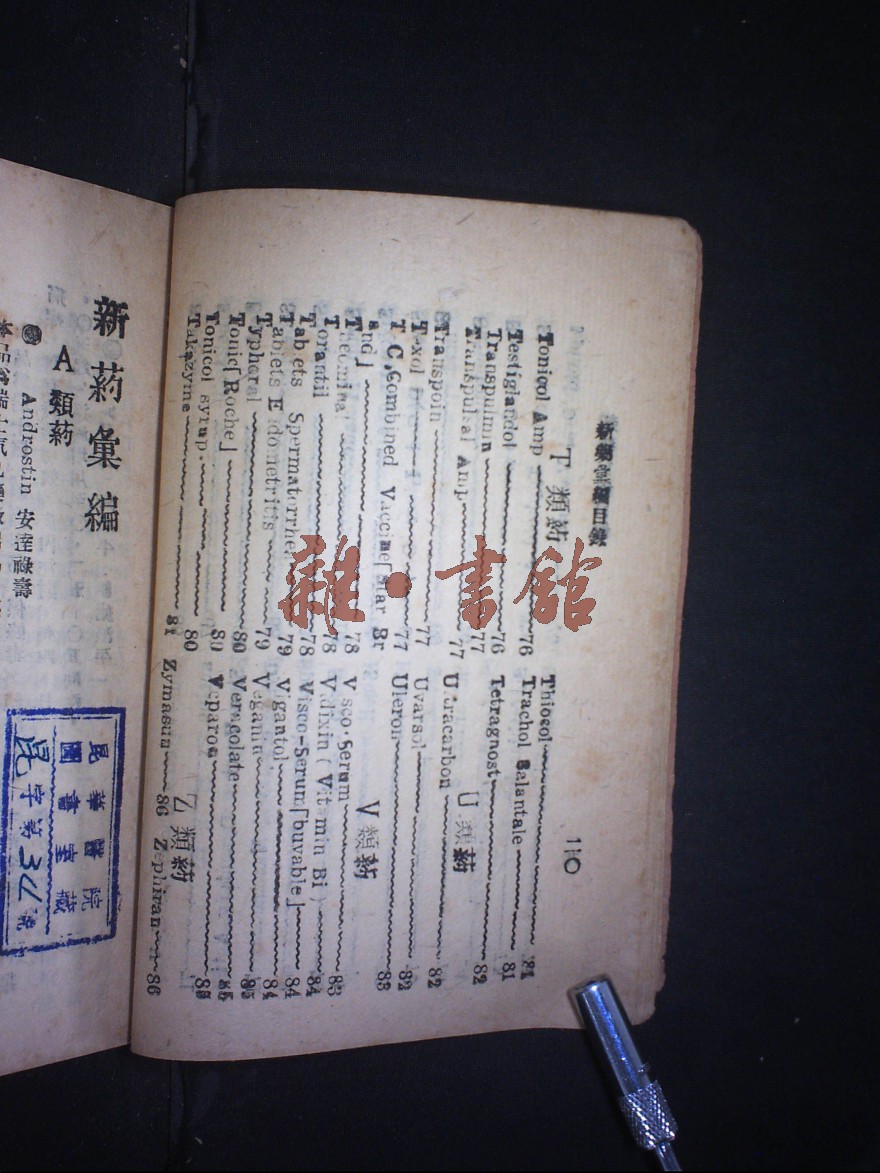 新葯彙編目錄
110
T 類葯
Tonicol Amp 76
Testiglandol 76
Transpulmin 77
Transpulmal Amp. 77
Transpoin 77
Texol 77
T.C. Combined Vaccine「Star Br
and」 78
Theominal 78
Torantil 78
Tablets Spermatorrhea 79
Tablets Endometritis 79
Typheral 79
Tonic「Roche」 80
Tonicol syrup. 80
Takazyme 81
Thiocol 81
Trachol Balantale 81
Tetragnost 82
U 類葯
Ultracarbon 82
Uvarsol 82
Uleron 83
V 類葯
Visco-Serum 83
Vidixin (Vitamin Bi) 84
Visco-Serum「buvable」 84
Vigantol 84
Veganin 85
Veracolate 85
Veparon
Z 類葯
Zymasun 86
Zephiran 86
新葯彙編
A 類葯
Androstin 安達祿壽
昆華醫院
圖書室藏
昆字第34號
雜·書館